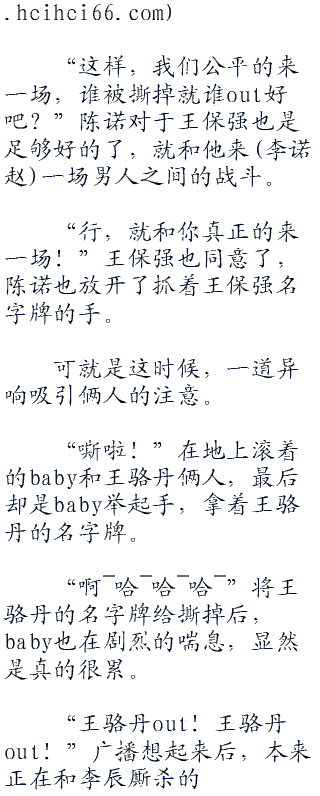 .hcihci66.com)
“这样，我们公平的来
一场，谁被撕掉就谁out好
吧？”陈诺对于王保强也是
足够好的了，就和他来(李诺
赵)一场男人之间的战斗。
“行，就和你真正的来
一场！”王保强也同意了，
陈诺也放开了抓着王保强名
字牌的手。
可就是这时候，一道异
响吸引俩人的注意。
“嘶啦！”在地上滚着
的baby和王骆丹俩人，最后
却是baby举起手，拿着王骆
丹的名字牌。
“啊¯哈¯哈¯哈¯”将王
骆丹的名字牌给撕掉后，
baby也在剧烈的喘息，显然
是真的很累。
“王骆丹out！王骆丹
out！”广播想起来后，本来
正在和李辰厮杀的